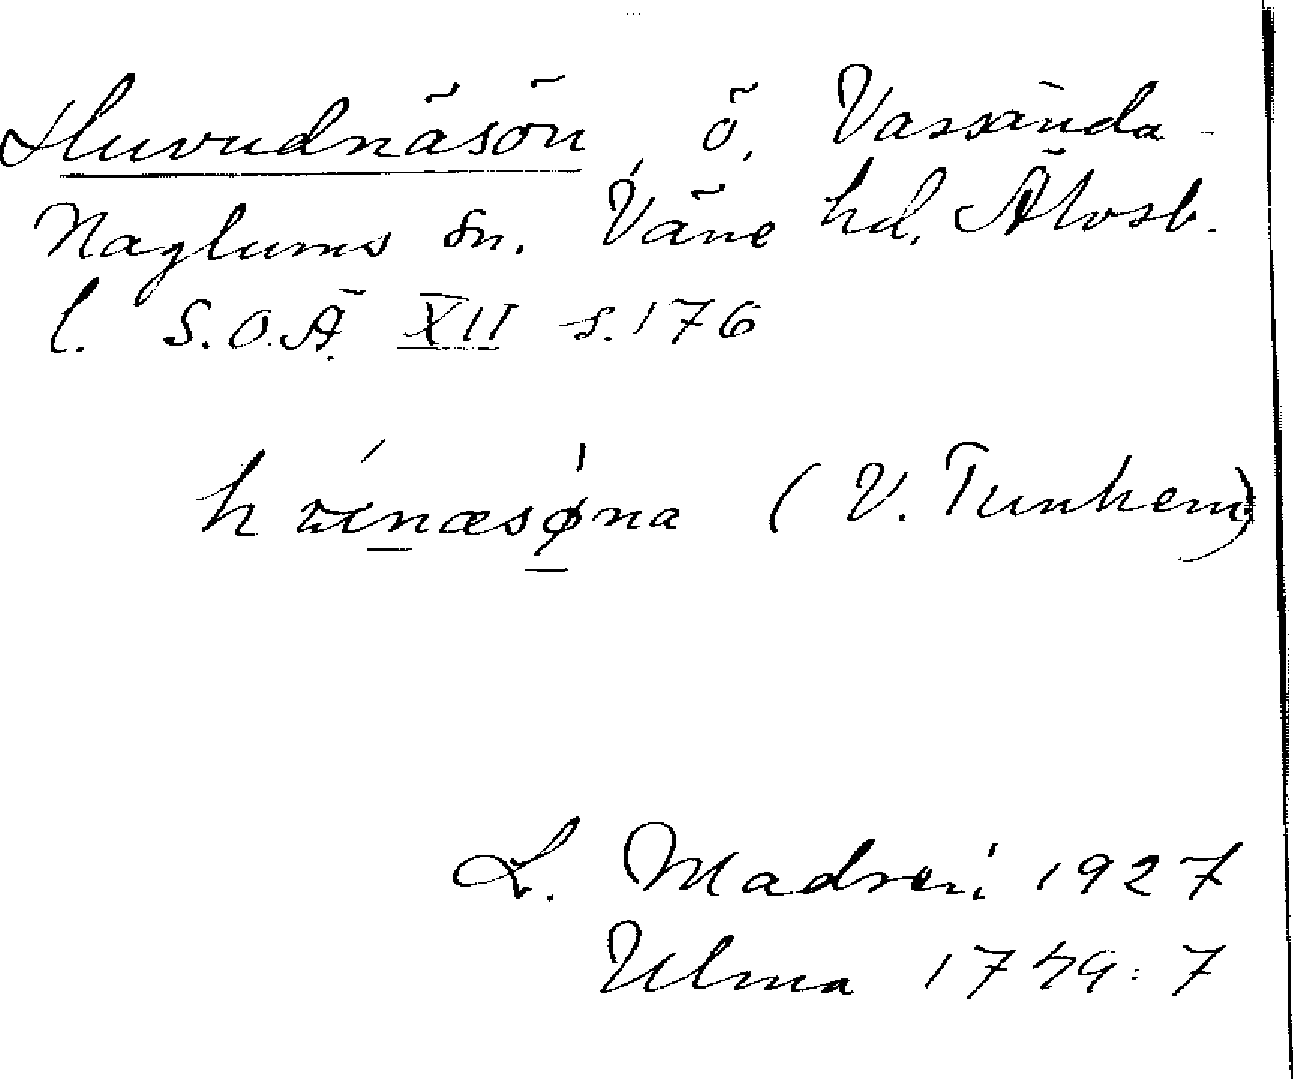 Huvudnäsön, ö, Vassända-
Naglums sn. Väne hd, Älvsb.
l. S.O.Ä. XII s. 176
(V. Tunhem)
L. Madsen 1927
Ulma 1749:7